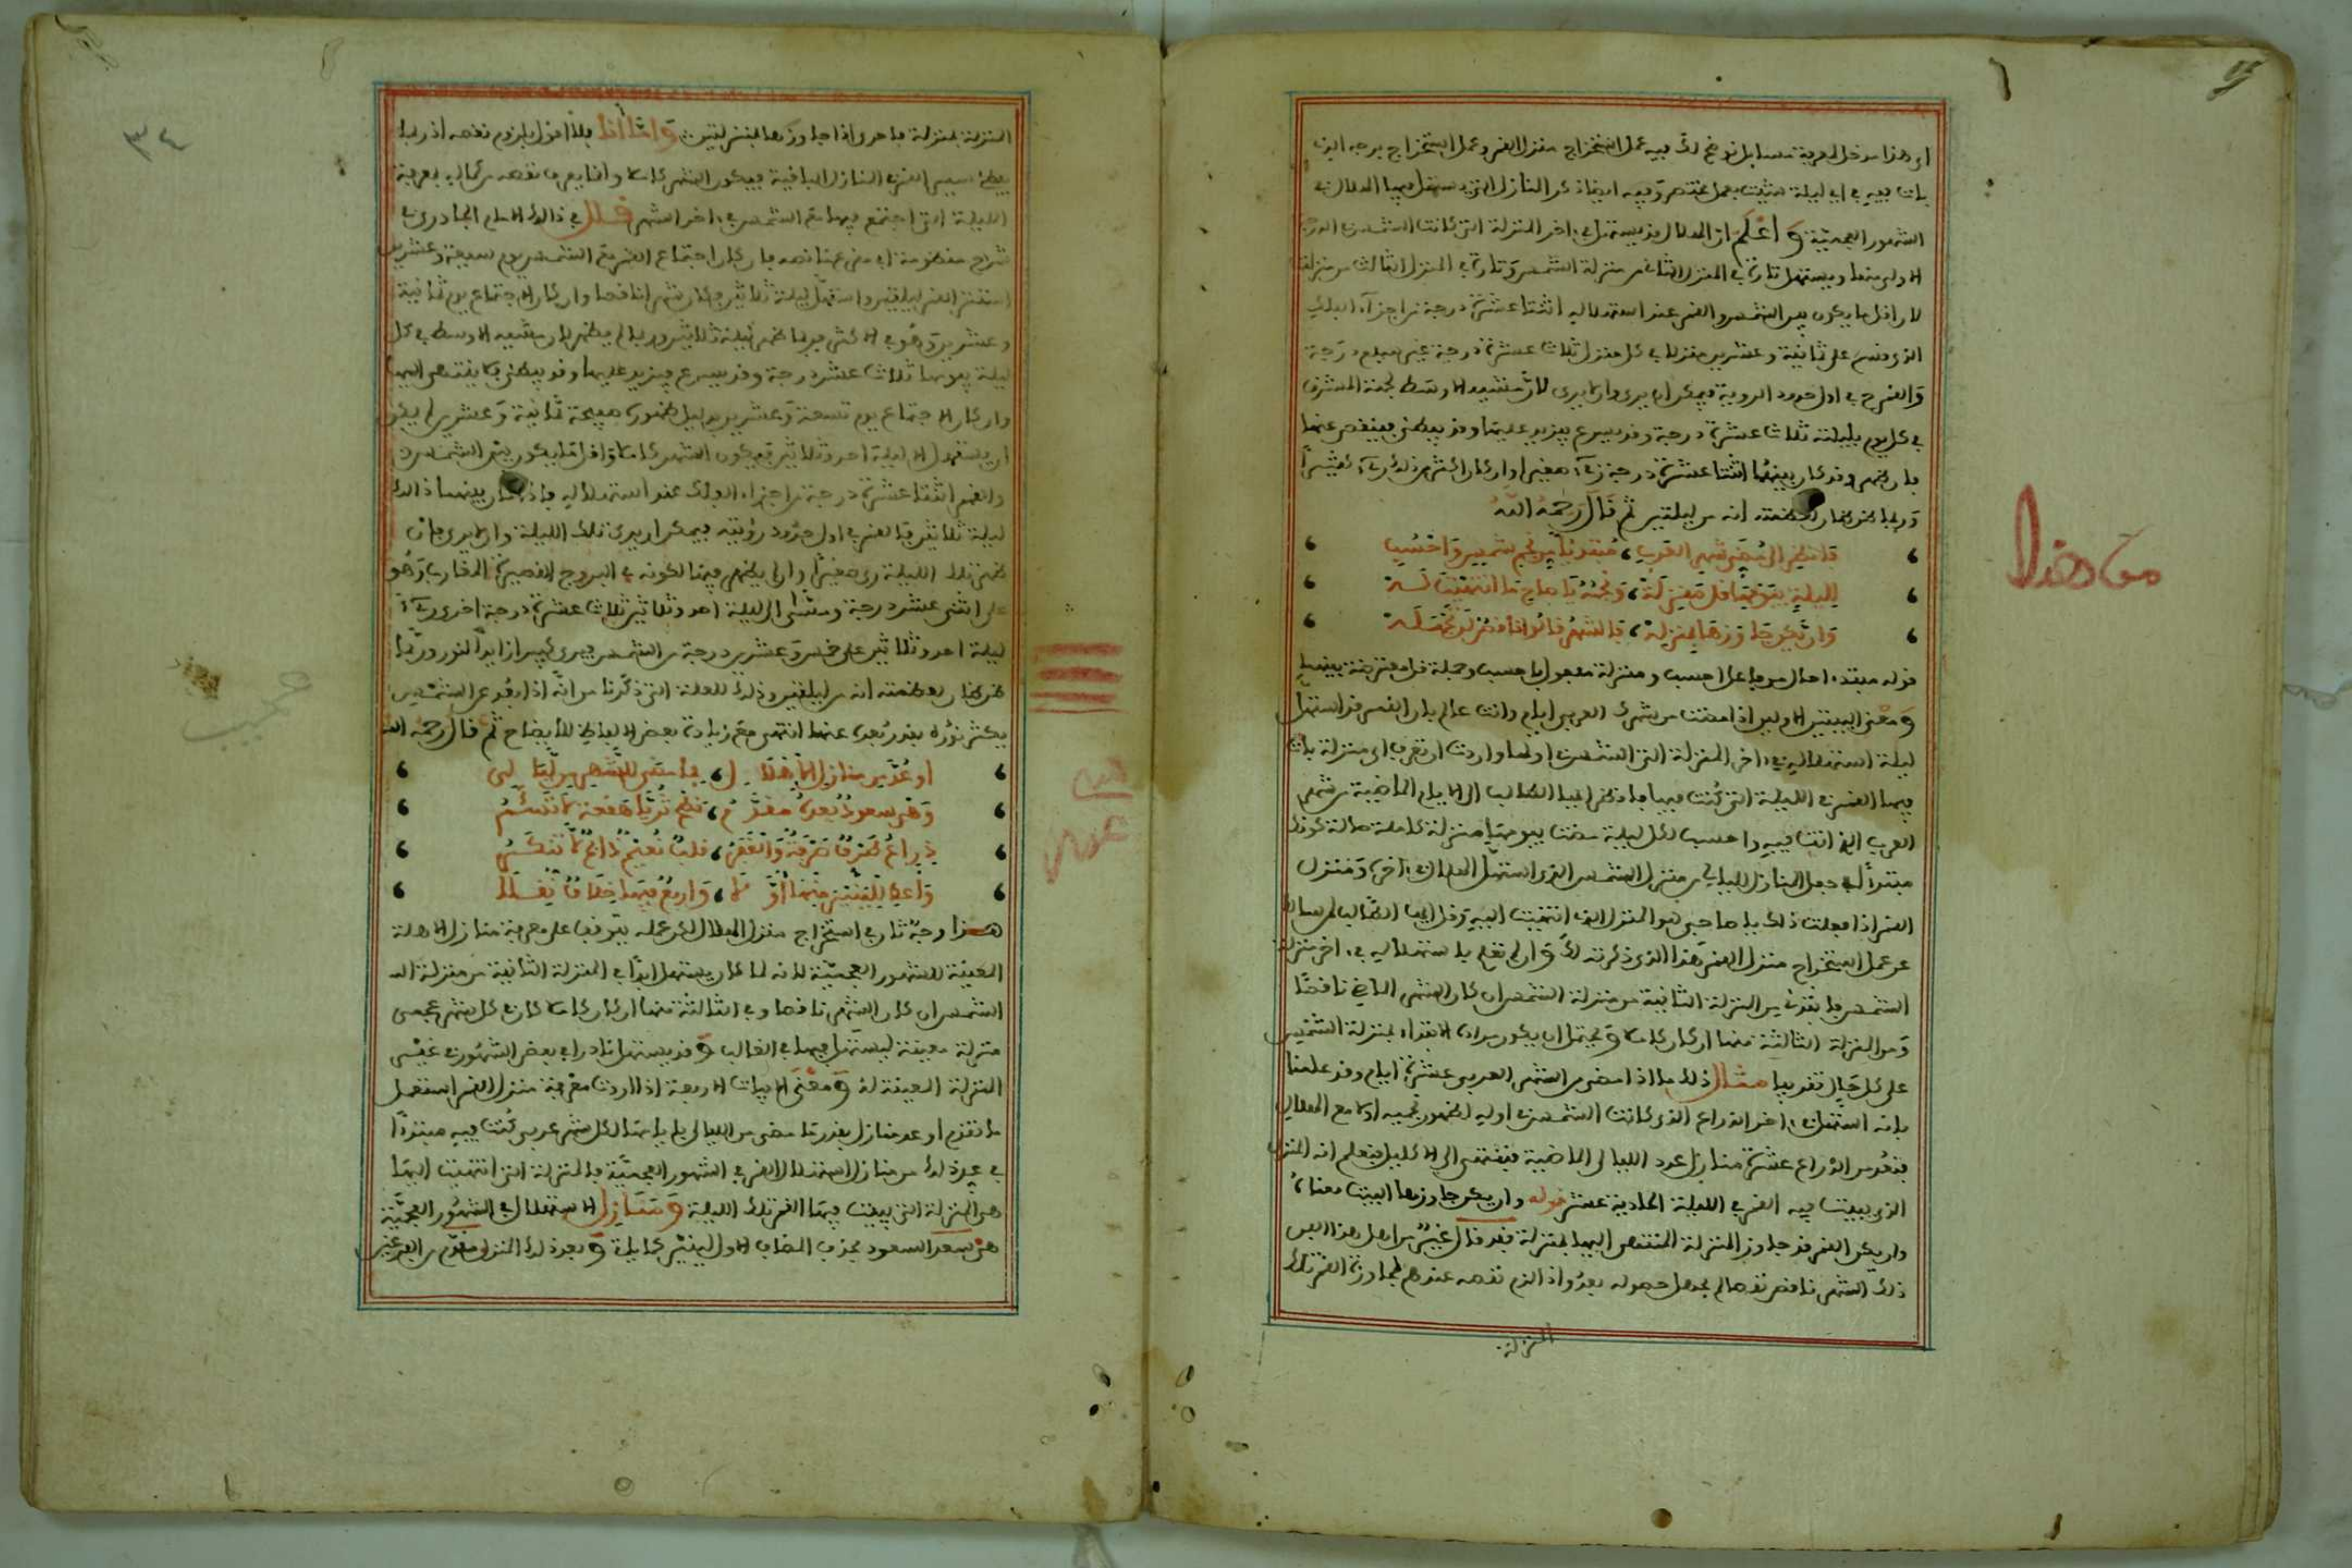 أي هذا مدخل لمعرفة مسايل نوضح لك فيه عمل استخراج منزل القمر وعمل استخراج برجه الذي
بات فيه في أي ليلة شئت بعمل مختصر وفيه أيضا ذكر المنازل التي يستهل فيها الهلال في
الشهور العجمية وَاعْلَم أن الهلال قد يستهل في آخر المنزلة التي كانت الشمس في الدرجة
الأولى منها ويستهل تارة في المنزل الثاني من منزلة الشمس وتارة في المنزل الثالث من منزلة
لأن أقل ما يكون بين الشمس والقمر عند استهلاله اثنتا عشرة درجة من أجزاء الفلك
الذي قسم على ثمانية وعشرين منزلا في كل منزل ثلاث عشرة درجة غير سبع درجة
والقمر في أول حدود الروية فيمكن أن يرى وأن لا يرى لأن مشيه الأوسط لجهة المشرق
في كل يوم بليلته ثلاث عشرة درجة وقد يسرع فيزيد عليها وقد يبطئ فينقص عنها
فإن ظهر وقد كان بينهما اثنتا عشرة درجة رءي صغيرا وإن كان أكثر من ذلك رءي كبيرا
وربما ظن الظان لعظمته أنه من ليلتين ثم قال رحمه الله
فانظر إلى مضي شهر العرب ، مبتديا من نجم شمس واحسب
لليلة بيومها قل منزلة ، ونجمه يا صاح ما انتهيت له
وإن يكن جاوزها بمنزلة ، فالشهر قالوا ناقص لن نجهله
قوله مبتديا حال من فاعل احسب ومنزلة مفعول باحسب وجملة قل معترضة بينهما
وَمعنى البيتين الأولين إذا مضت من شهرك العربي أيام وأنت عالم بأن القمر قد استهل
ليلة استهلاله في آخر المنزلة التي الشمس في أولها وأردت أن تعرف أي منزلة بات
فيها القمر في الليلة التي كنت فيها فانظر أيها الطالب إلى الأيام الماضية من شهر
العرب الذي أنت فيه واحسب لكل ليلة مضت بيومها منزلة كاملة حالة كونك
مبتدئا في جعل المنازل لليالي من منزل الشمس الذي استهل الهلال في آخره ومنزل
القمر إذا فعلت ذلك يا صاحبي هو المنزل الذي انتهيت إليه وقل أيها الطالب لمن سالك
عن عمل استخراج منزل القمر هذا الذي ذكرته لك وإن لم تعلم باستهلاله في آخر منزلة
الشمس فابتدئ من المنزلة الثانية من منزلة الشمس إن كان الشهر الماضي ناقصا
ومن المنزلة الثالثة منها إن كان كاملا ويحتمل أن يكون مراده الابتداء بمنزلة الشمس
على كل حال تقريبا مثال ذلك ما إذا مضى من الشهر العربي عشرة أيام وقد علمنا
بأنه استهل في آخر الذراع الذي كانت الشمس في أوله
فنعد من الذراع عشرة منازل عدد الليالي الماضية فتنتهي إلى الاكليل فنعلم أنه المنزل
الذي يبيت فيه القمر في الليلة الحادية عشر قوله وإن يكن جاوزها البيت معناه
وإن يكن القمر قد جاوز المنزلة المنتهى إليها بمنزلة فقد قال غير من أهل هذا الفن
ذلك الشهر ناقص نقصا لم يجهل حصوله بعد وإذ الزم نقصه عندهم لمجاوزة القمر تلك
المنزلة
من هذا
٣٤
المنزلة بمنزلة فأحرى إذا جاوزها بمنزلتين وَأمّا أنا فلا أقول بلزوم نقصه إذ ربما
يبطئ سير القمر في المنازل الباقية فيكون الشهر كاملا وإنما يعرف نقصه من كماله بمعرفة
الليلة التي اجتمع فيها مع الشمس في آخر الشهر قال في ذلك الإمام الجادري في
شرح منظومة أبي مقرع ما نصه فإن كان اجتماع القمر مع الشمس يوم سبعة وعشرين
استتر القمر ليلتين واستهل ليلة ثلاثين وكان شهرا ناقصا وإن كان الاجتماع يوم ثمانية
وعشرين وهو في الأكثر فربما ظهر ليلة ثلاثين وربما لم يظهر لأن مشيه الأوسط في كل
ليلة بيومها ثلاث عشر درجة وقد يسرع فيزيد عليها وقد يبطئ فلا ينتهي إليها
وإن كان الاجتماع يوم تسعة وعشرين
أن يستهل إلا ليلة احد وثلاثين فيكون الشهر كاملا وأقل ما يكون بين الشمس
والقمر اثنتا عشرة درجة من أجزاء الفلك عند استهلاله فإذا كان بينهما ذلك
ليلة ثلاثين فالقمر في أول حدود رؤيته فيمكن أن يرى تلك الليلة وأن لا يرى فإن
ظهر تلك الليلة رءي صغيرا وإن لم يظهر فيها لكونه في البروج القصيرة المغارب وهو
على اثنى عشر درجة ومشى إلى ليلة احد وثلاثين ثلاث عشرة درجة أخرى رءي
ليلة احد وثلاثين على خمس وعشرين درجة من الشمس فيرى كبيرا زايد النور وربما
ظن الظان لعظمته أنه من ليلتين وذلك للعلة التي ذكرنا من أنه إذا بعد عن الشمس
يكثر نوره بقدر بعده عنها انتهى مع زيادة بعض الألفاظ للإيضاح ثم قال رحمه الله
أو عد من منازل الأهلال ، ما مضى للشهر من ليالي
وَهي سعود بعده مقدم ، نطح ثريا هقعة لا تسأم
ذراع طرف صرفة والغفر ، قلب نعيم ذابح لا تنكر
وَاعط لليلتين منها أولا ، وأربع فيها خلاف يفصلا
هذا وجه ثان في استخراج منزل الهلال لكن عمله يتوقف على معرفة منازل الأهلة
المعينة للشهور العجمية لأنه لما كان يستهل أبدا في المنزلة الثانية من منزلة
الشمس إن كان الشهر ناقصا وفي الثالثة منها إن كان كاملا كان في كل شهر عجمي
منزلة معينة ليستهل فيها في الغالب وقد يستهل نادرا في بعض الشهور في غير
المنزلة المعينة له وَمعنى الأبيات الأربعة إذا أردت معرفة منزل القمر استعمل
ما تقدم أو عد منازل بقدر ما مضى من الليالي بأيامها لكل شهر عربي كنت فيه مبتدئا
في عد ذلك من منازل استهلال القمر في الشهور العجمية فالمنزلة التي انتهيت إليها
هي المنزلة التي يبيت فيها القمر تلك الليلة وَمَنَازِل الاستهلال في الشهور العجمية
هي سعد السعود بحذف المضاف الأول لينير وبعد ذلك المنزل مقدم
عجيب